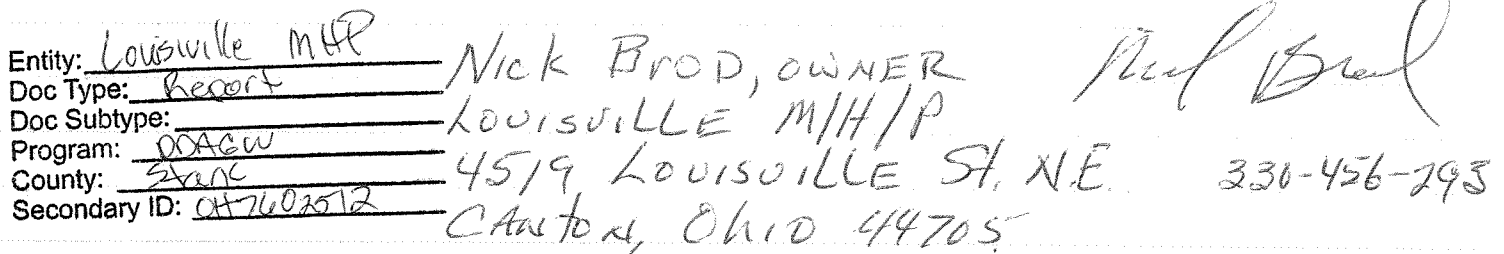 Entity: Louisville MHP
Doc Type: Report
Doc Subtype:
Program: DDAGW
County: Stark
Secondary ID: OH7602512
Nick Brod, OWNER
LOUISVILLE M/H/P
4519 LOUISVILLE St. N.E. 330-456-293
CANTON, Ohio 44705